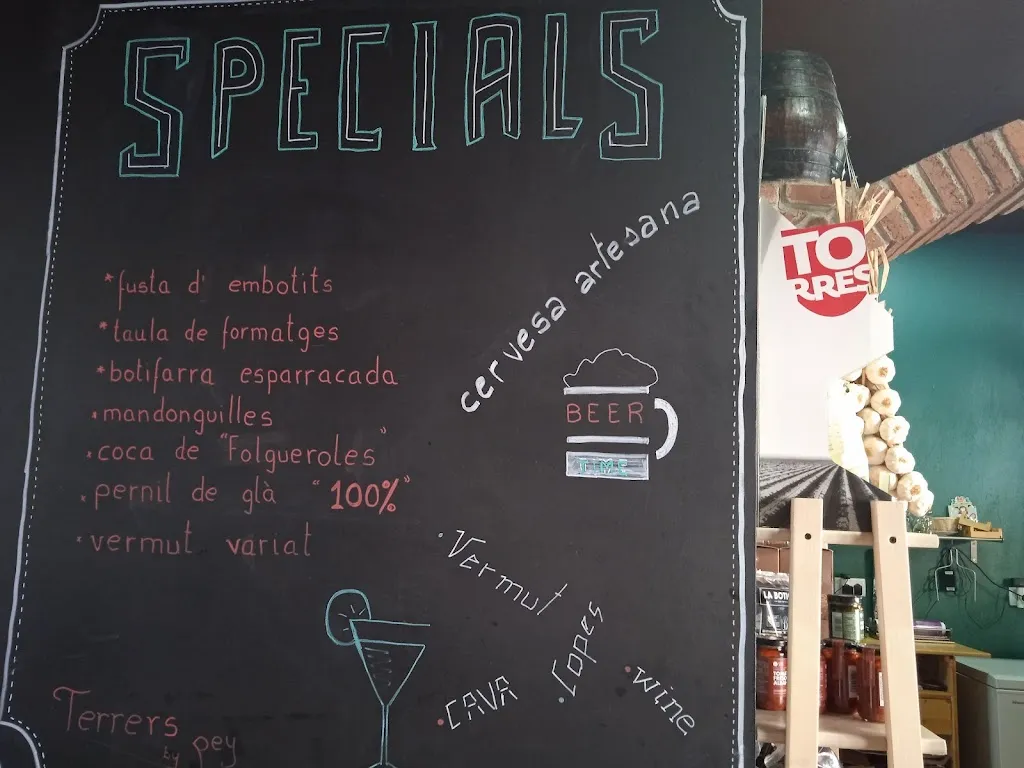 SPECIALS
*fusta d' embotits
*taula de formatges
*botifarra esparracada
*mandonguilles
*coca de "Folgueroles"
*pernil de glà "100%"
*vermut variat
cervesa artesana
BEER
TIME
·Vermut
·Copes
·CAVA
·wine
Terrers
by pey
TO
RRES
LA BOTI